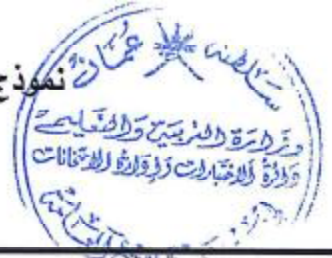 سلطنة عُمان
نموذج
وزارة التربية والتعليم
دائرة الاختبارات وإدارة الامتحانات